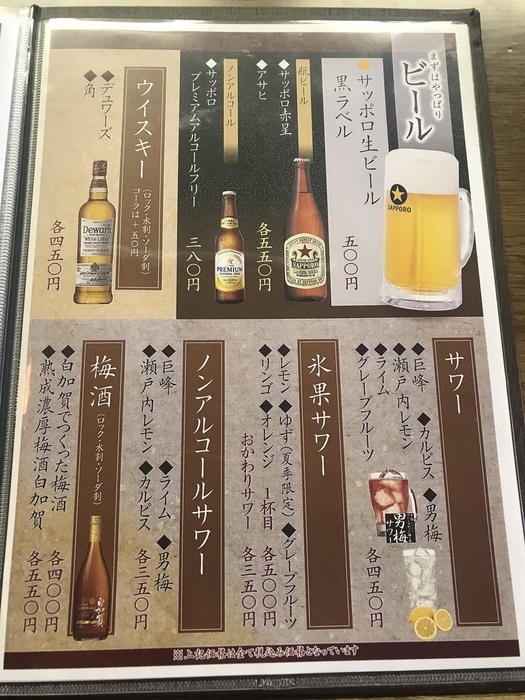 まずはやっぱり
ビール
サッポロ生ビール
黒ラベル
五〇〇円
SAPPORO
瓶ビール
◆サッポロ赤星
◆アサヒ
各五五〇円
SAPPORO
ノンアルコール
◆サッポロ
プレミアムアルコールフリー
三八〇円
PREMIUM
ウイスキー
(ロック・水割・ソーダ割)
コーラは+五〇円
◆デュワーズ
◆角
各四五〇円
Dewar's
WHITE LABEL
サワー
◆巨峰 ◆カルピス ◆男梅
◆瀬戸内レモン
◆ライム
◆グレープフルーツ
各四五〇円
男梅
サワー
氷果サワー
◆レモン ◆ゆず(夏季限定) ◆グレープフルーツ
◆リンゴ ◆オレンジ
1杯目 各五〇〇円
おかわりサワー 各三五〇円
ノンアルコールサワー
◆巨峰 ◆ライム ◆男梅
◆瀬戸内レモン ◆カルピス
各三五〇円
梅酒
(ロック・水割・ソーダ割)
◆白加賀でつくった梅酒
各四〇〇円
◆熟成濃厚梅酒白加賀
各五五〇円
※上記価格は全て税込み価格となっています